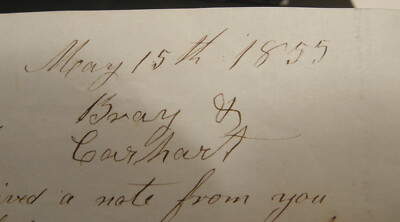 May 15th 1855
Bray &
Carhart
ived a note from you